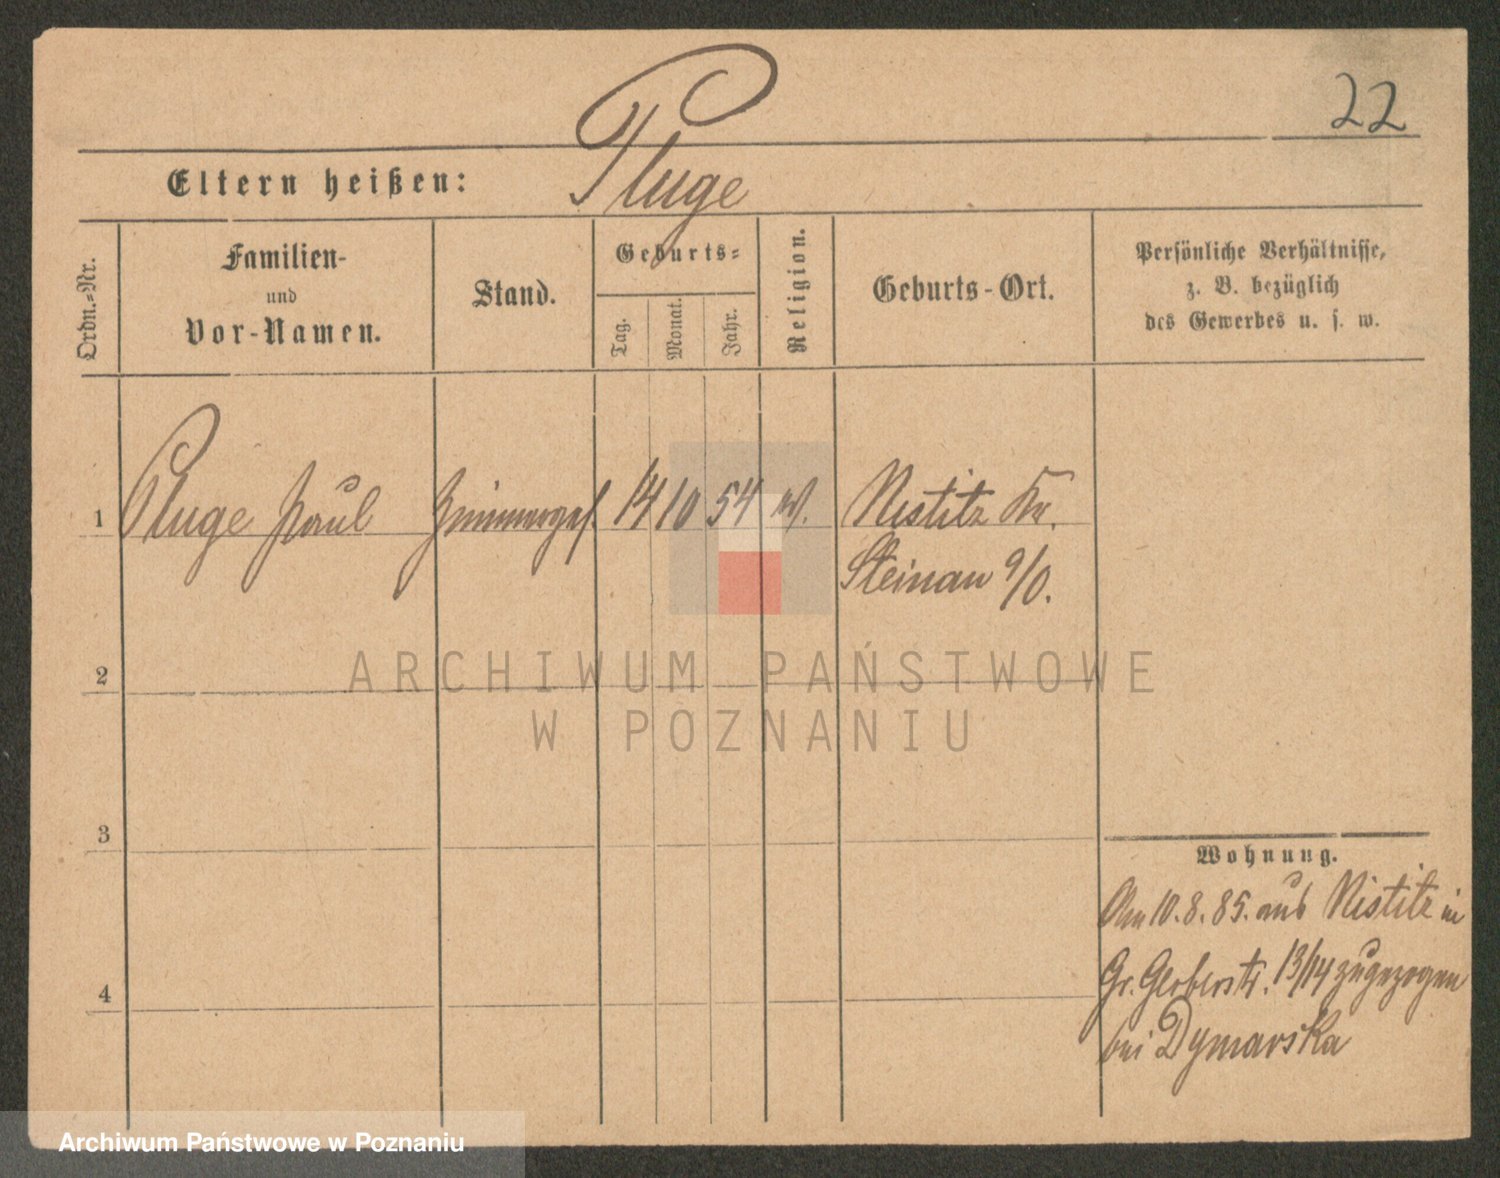 22
Eltern heißen: Pluge
Ordn.=Nr.
Familien-
und
Vor-Namen.
Stand.
Geburts=
Tag.
Monat.
Jahr.
Religion.
Geburts-Ort.
Persönliche Verhältnisse,
z. B. bezüglich
des Gewerbes u. s. w.
1 Pluge Paul Zimmerges. 14 10 54 Nistitz Kr.
Steinau a/O.
2
ARCHIWUM PAŃSTWOWE
W POZNANIU
3
Wohnung.
Am 10.8.85. aus Nistitz in
4
Gr. Gerberstr. 13/14 zugezogen
bei Dymarska
Archiwum Państwowe w Poznaniu